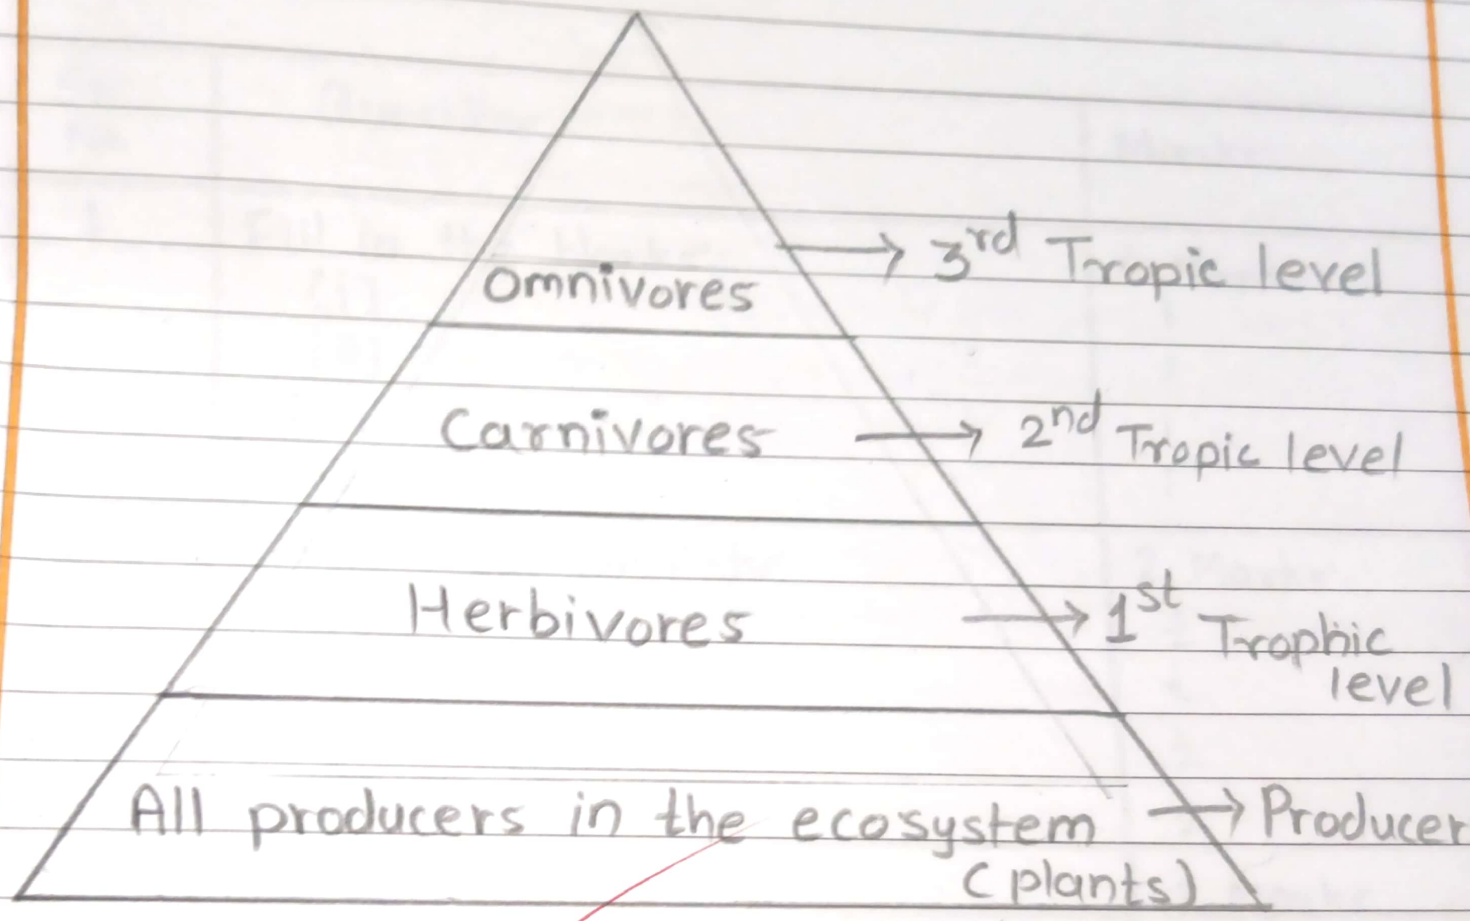 Omnivores → 3rd Tropic level
Carnivores → 2nd Tropic level
Herbivores → 1st Trophic
level
All producers in the ecosystem → Producer
(plants)